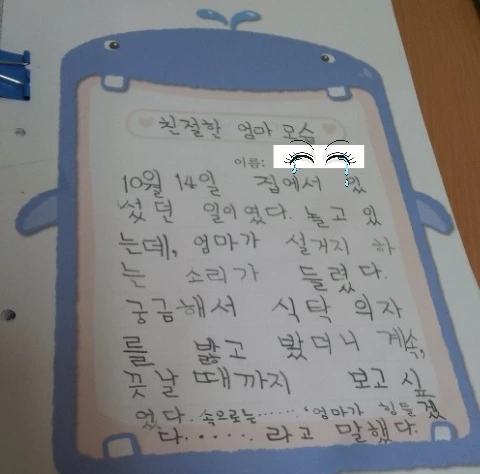 친절한 엄마 모습
이름:
10월 14일 집에서 있
섰던 일이였다. 놀고 있
는데, 엄마가 설거지 하
는 소리가 들렸다.
궁금해서 식탁 의자
를 밟고 봤더니 계속,
끗날 때까지 보고 싶
었다. 속으로는······ '엄마가 힘들겠
다······ 라고 말했다.